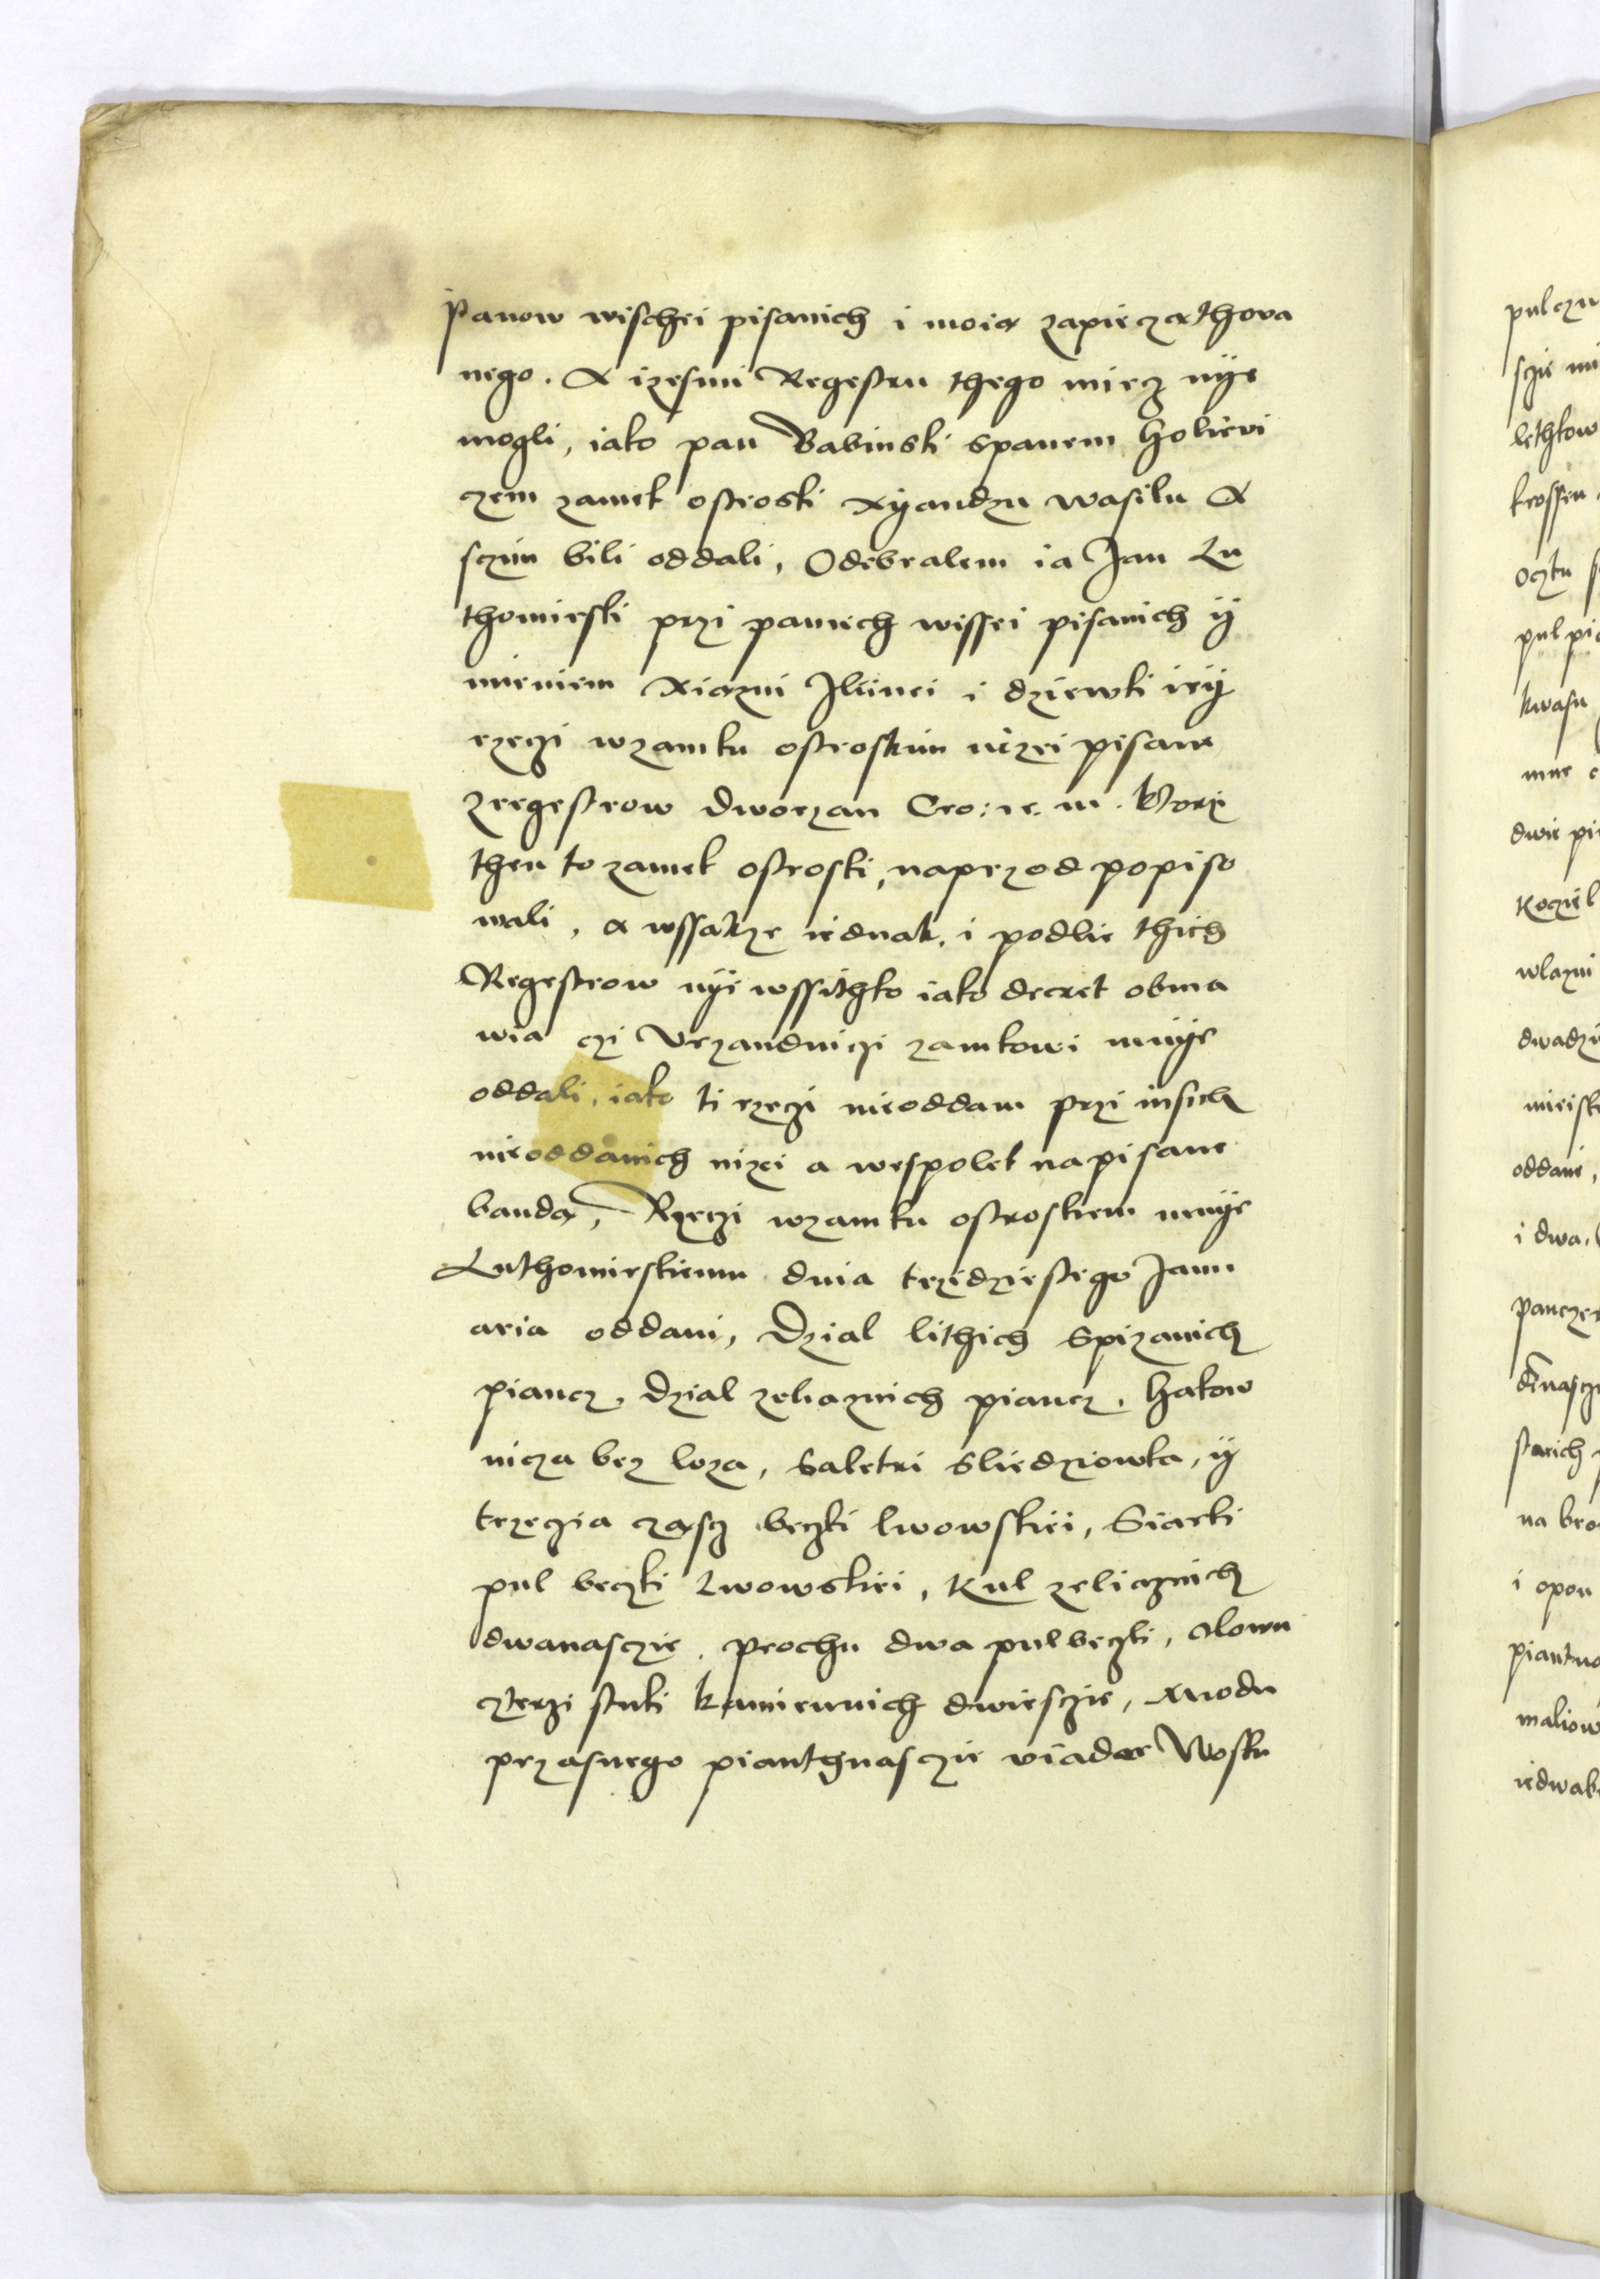 Panow wischei pisanich i moia zapieczathova
nego. A izesmi Regestru thego miecz nÿe
mogli, iako pan Babinski spanem Holievi
czem zamek ostroski Xÿandzu wasilu A
sczim bili oddali, Odebralem ia Jan Lu
thomirski przi paniech wissei pisanich ÿ
mieniem Xiazni Iliinei i dziewki ieÿ
rzeczi wzamku ostroskim nizei pisane
zregestrow dworzan Cro: ie: m. ktorzi
then to zamek ostroski, naprzod popiso
wali, a wssakze iednak, i podlie thich
Regestrow nÿe wssithko iako decret obma
wia czi Vrzandniczi zamkowi mnÿe
oddali, iako ti rzeczi nieoddam przi insich
nieoddanich nizei a wespolek napisane
banda, Rzeczi wzamku ostroskiem mnÿe
Luthomirskiemu dnia trzidziestego Janu
aria oddani, Dzial lithich Spizanich
piancz, dzial zeliaznich piancz, hakow
nicza bez loza, Saletri Sliedziowka, ÿ
trzeczia czasc beczki lwowskiei, Siarki
pul beczki Lwowskiei, Kul zeliaznich
dwanasczie, prochu dwa pulbeczki, Olowu
czterzi stuki kamiennich dwiesczie, Miodu
przasnego pianthnasczie viader Wosku
pulczu
sczie mi
lethkow
krossen
Ocztu
pul pia
kwasu
mne
dwie pi
Koczil
wlazni
dwadzie
mieisk
oddane,
i dwa,
pancze
starich
na bro
i opon
piantno
maliow
iedwab